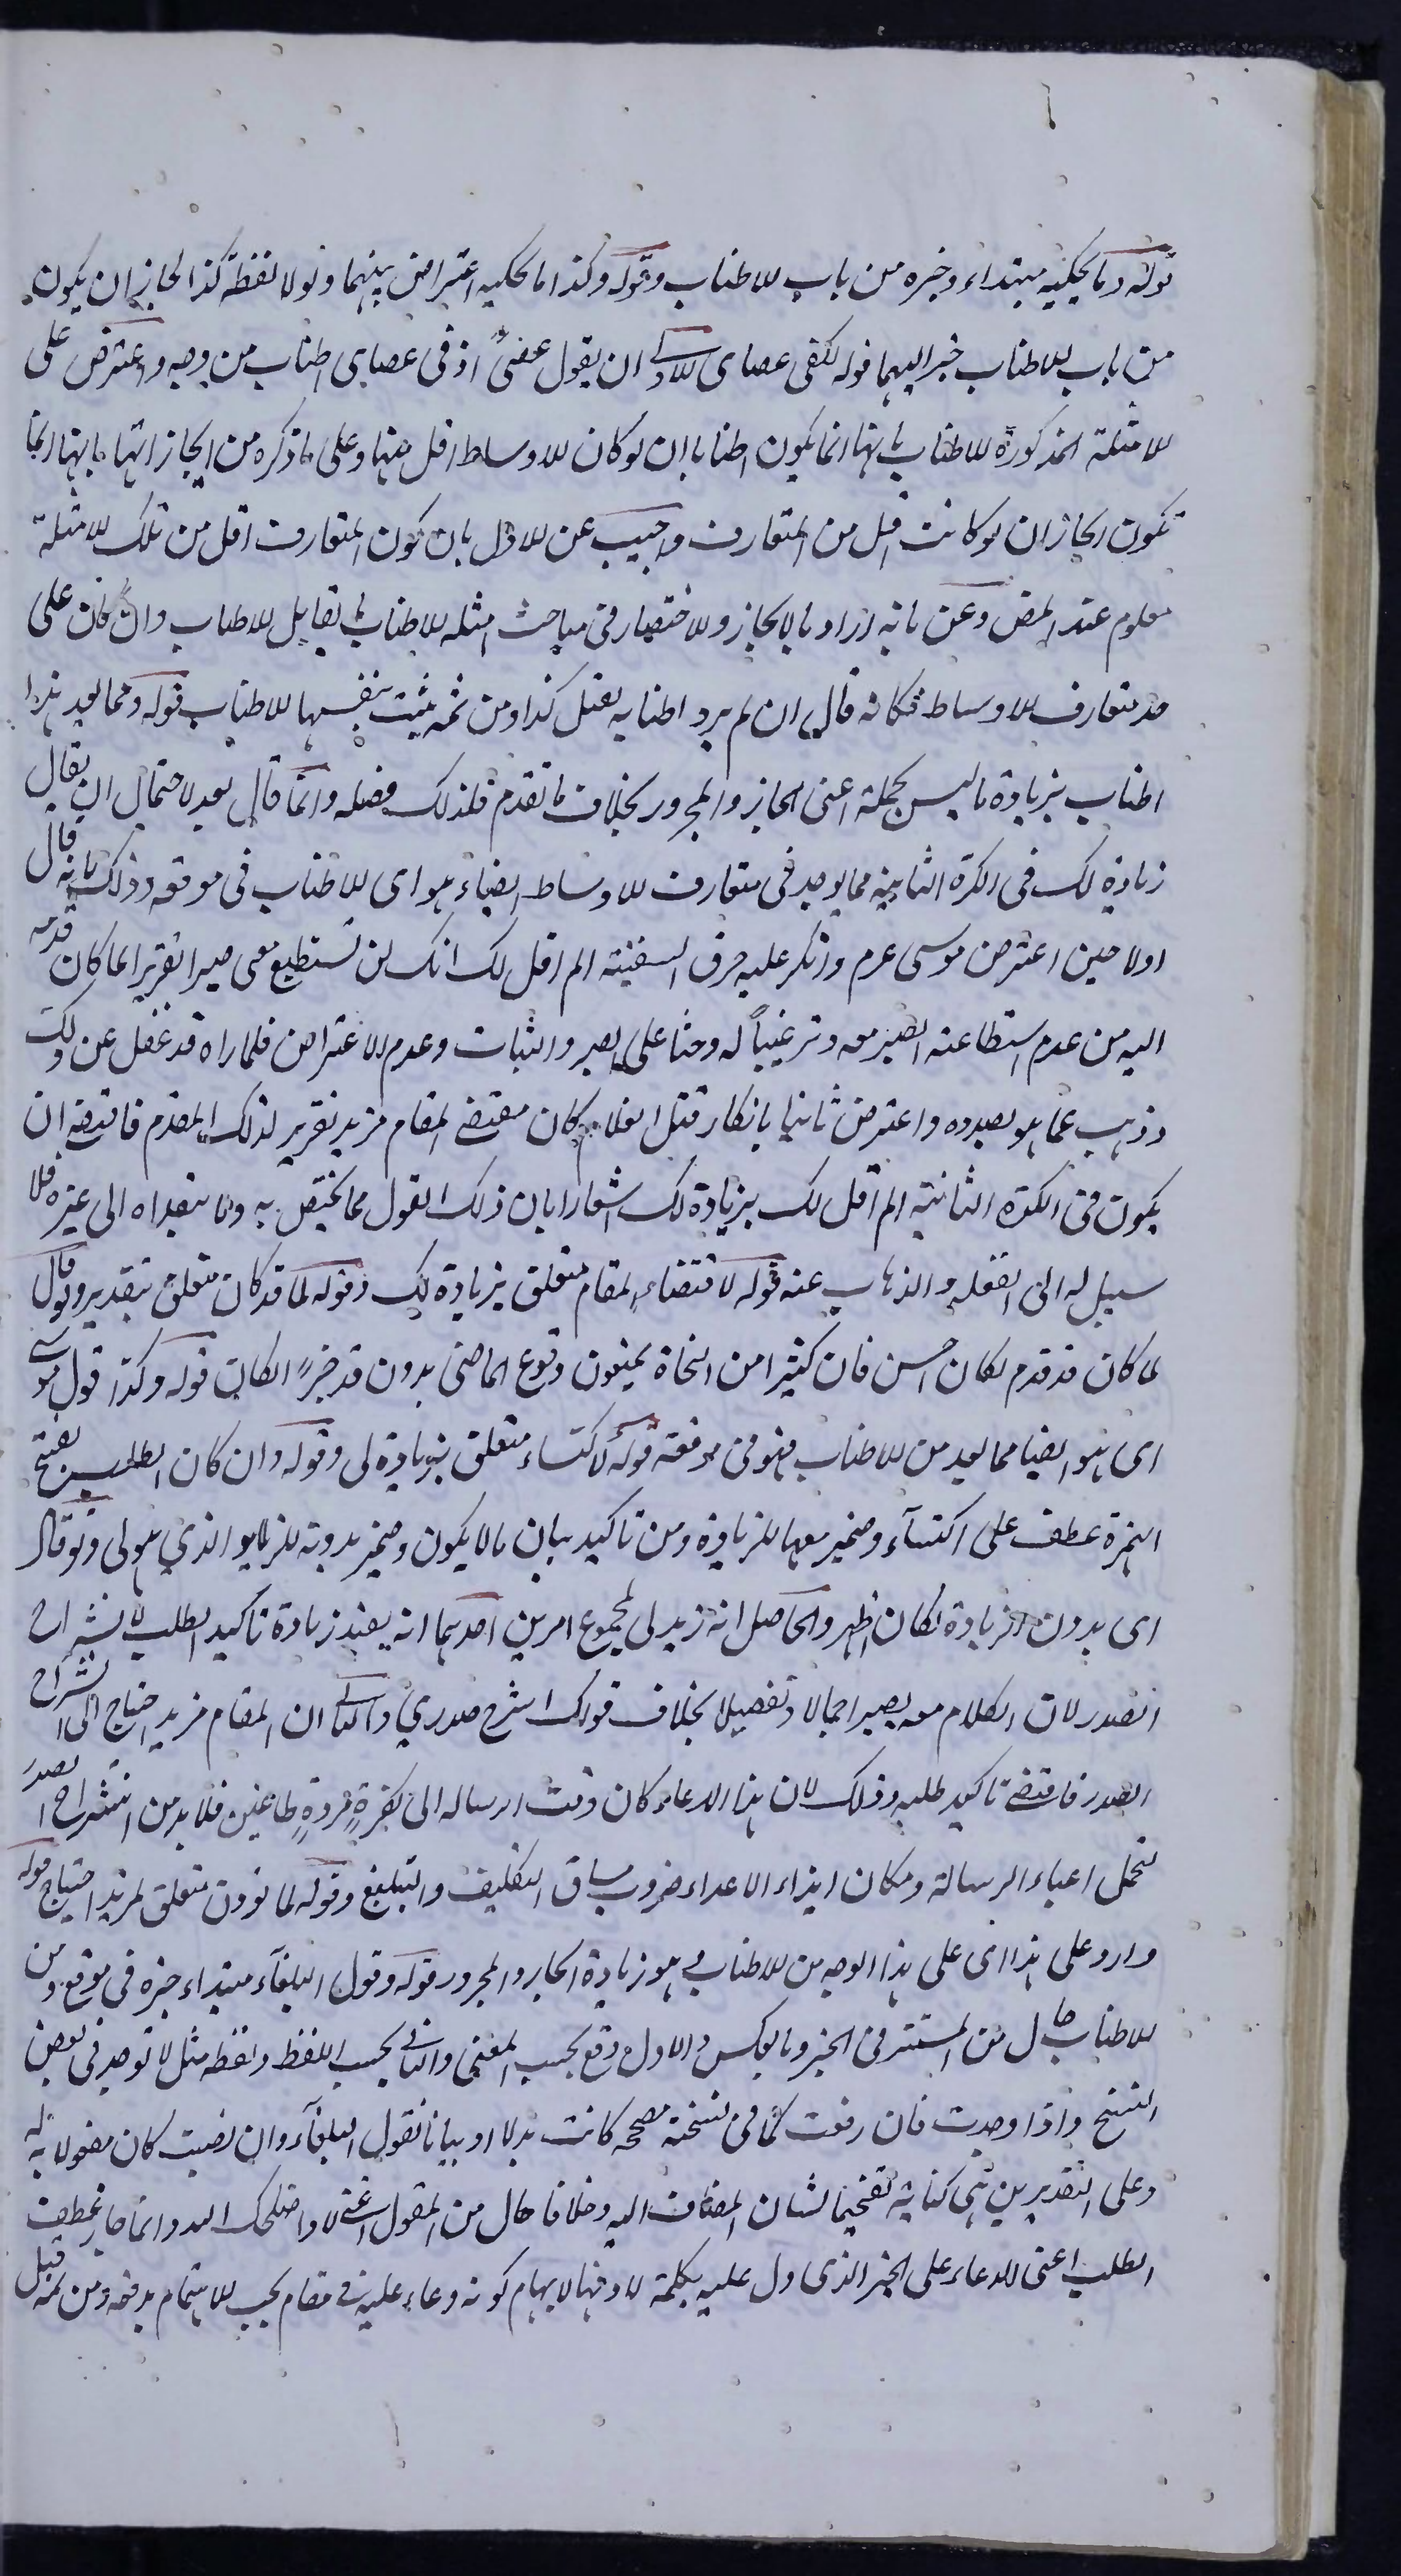 قوله وما يحكيه مبتداء وخبره من باب الاطناب وقوله وكذا ما يحكيه اعتراض بينهما ولولا لفظة كذا لجاز ان يكون
من باب الاطناب خبرا لهما قوله لكفى عصاى الاولى ان يقول عصى اذ فى عصاى اطناب من وجه واعترض على
الامثلة المذكورة للاطناب بانها انما يكون اطنابا ان لو كان الاوساط اقل منها وعلى ما ذكره من ايجازاتها بانها انما
تكون ايجازا ان لو كانت اقل من المتعارف واجيب عن الاول بان كون المتعارف اقل من تلك الامثلة
معلوم عند المص وعن بانه اراد بالايجاز والاختصار فى مباحث امثلة الاطناب ما يقابل الاطناب وان كان على
حد متعارف الاوساط فكانه قال ان لم يرد اطنابه يقل كذا ومن ثمه يثبت بنفسها للاطناب قوله ومما يعد هذا
اطناب بزيادة ما ليس بجملة اعنى الجار والمجرور بخلاف ما تقدم فلذلك فصله وانما قال يعد لاحتمال ان يقال
زيادة لك فى الكرة الثانية مما يوجد فى متعارف الاوساط ايضا هو اى الاطناب فى موقعه وذلك بانه قال
اولا حين اعترض موسى عم وانكر عليه خرق السفينة الم اقل لك انك لن تستطيع معى صبرا تقريرا لما كان قدمه
اليه من عدم استطاعته الصبر معه وترغيبا له وحثا على الصبر والثبات وعدم الاعتراض فلما راه قد غفل عن ذلك
وذهب عما هو بصدده واعترض ثانيا بانكار قتل الغلام كان مقتضى المقام مزيد تقرير لذلك المقدم فاقتضى ان
يكون فى الكرة الثانية الم اقل لك بزيادة لك اشعارا بان ذلك القول مما يختص به ولا يتعداه الى غيره فلا
سبيل له الى الغفلة والذهاب عنه قوله لاقتضاء المقام متعلق بزيادة لك وقوله لما قد كان متعلق بتقدير ولو قال
لما كان قد قدم لكان احسن فان كثيرا من النحاة يمنعون وقوع الماضى بدون قد خبرا لكان قوله وكذا قول موسى
اى هو ايضا مما يعد من الاطناب فهو فى موقعه قوله لاكتساء متعلق بزيادة لى وقوله وان كان الطلب بفتح
الهمزة عطف على اكتساء وضمير معها للزيادة ومن تاكيد بيان ما لا يكون وضمير بدونه للزائد الذي هو لى ولو قال
اى بدون الزيادة لكان اظهر والحاصل انه زيد لى لمجموع امرين احدهما انه يفيد زيادة تاكيد الطلب لانشراح
الصدر لان الكلام معه يصير اجمالا وتفصيلا بخلاف قولك اشرح صدري والثانى ان المقام مزيد احتياج الى انشراح
الصدر فاقتضى تاكيد طلبه وذلك لان هذا الدعاء كان وقت ارساله الى كفرة مردة طاغين فلا بد من انشراح الصدر
لتحمل اعباء الرسالة ومكان ايذاء الاعداء ضروب مساق التكليف والتبليغ وقوله لما نودن متعلق لمزيد احتياج قوله
وارد على هذا اى على هذا الوجه من الاطناب هو زيادة الجار والمجرور قوله وقول البلغاء مبتداء خبره فى موقع ومن
الاطناب حال من المستتر فى الخبر وبالعكس والاول وقع بحسب المعنى والثانى بحسب اللفظ ولفظه مثل لا توجد فى بعض
النسخ واذا وجدت فان رفعت كما فى نسخة مصححه كانت بدلا او بيانا لقول البلغاء وان نصبت كان مفعولا به له
وعلى التقديرين هى كناية تفخيما لشان المضاف اليه وخلافا حال من المقول اعنى لا واصلحك الله وانما جاز عطف
الطلب اعنى الدعاء على الخبر الذى دل عليه بكلمة لا دفعا لايهام كونه دعاء عليه فى مقام يجب الاهتمام بدفعه ومن ثمه قيل